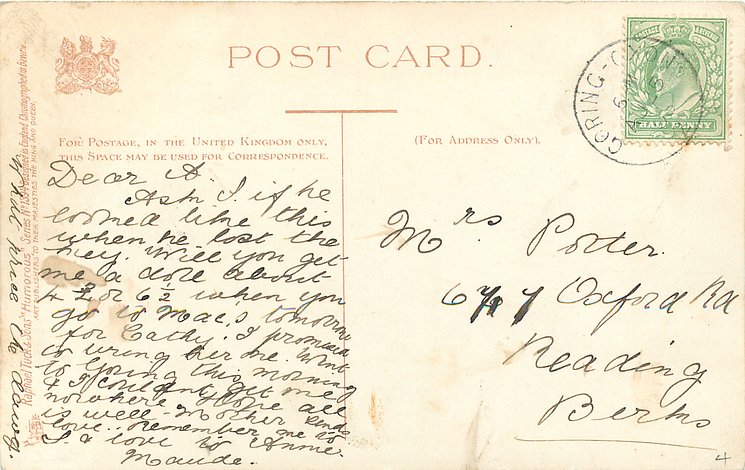 POST CARD.
FOR POSTAGE, IN THE UNITED KINGDOM ONLY,
THIS SPACE MAY BE USED FOR CORRESPONDENCE.
(FOR ADDRESS ONLY).
Dear A.
Ask J. if he
loomed like this
when he lost the
key. Will you get
me a doll about
4¾ or 6½ when you
go to Mac,s tomorrow
for Cathy. I promised
to bring her one. Went
to Goring this morning
& I couldnt get one
nowhere. Hope all
is well. Mother sends
love. Remember me to
J & love to Annie
Maude.
Mrs Porter.
Oxford Rd
Reading
Berks
GORING
HALF PENNY
Raphael Tuck & Sons' "Humorous" Series
ART PUBLISHERS TO THEIR MAJESTIES THE KING AND QUEEN.
4